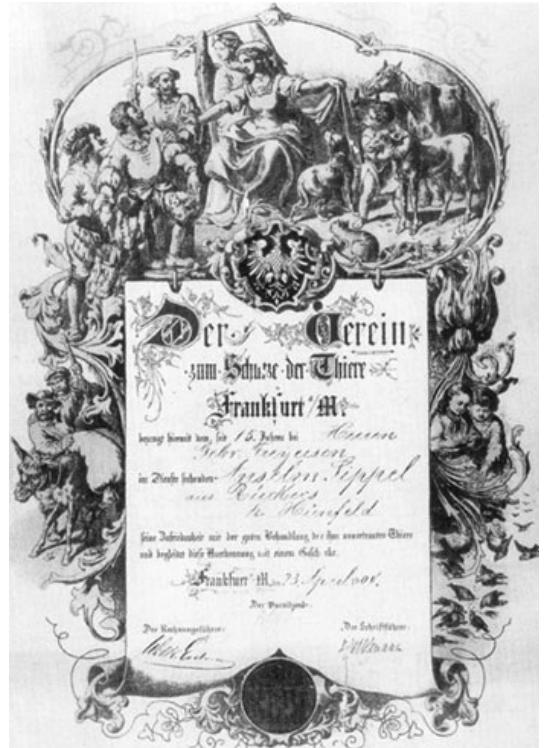 Der Verein
zum Schutze der Thiere
Frankfurt a/M.
bezeugt hiermit dem, seit 15 Jahren bei Herren
Gebr.
im Dienste stehenden Anselm Sippel
aus Rückers
b. Hünfeld
seine Zufriedenheit mit der guten Behandlung der ihm anvertrauten Thiere
und begleitet diese Anerkennung mit einem Geschenke.
Frankfurt a/M. 23. April
Der Vorsitzende:
Der Rechnungsführer: Der Schriftführer: